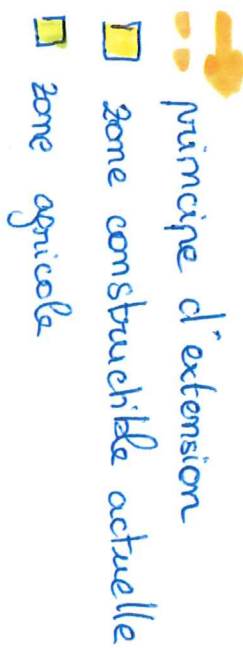 principe d'extension
zone constructible actuelle
zone agricole